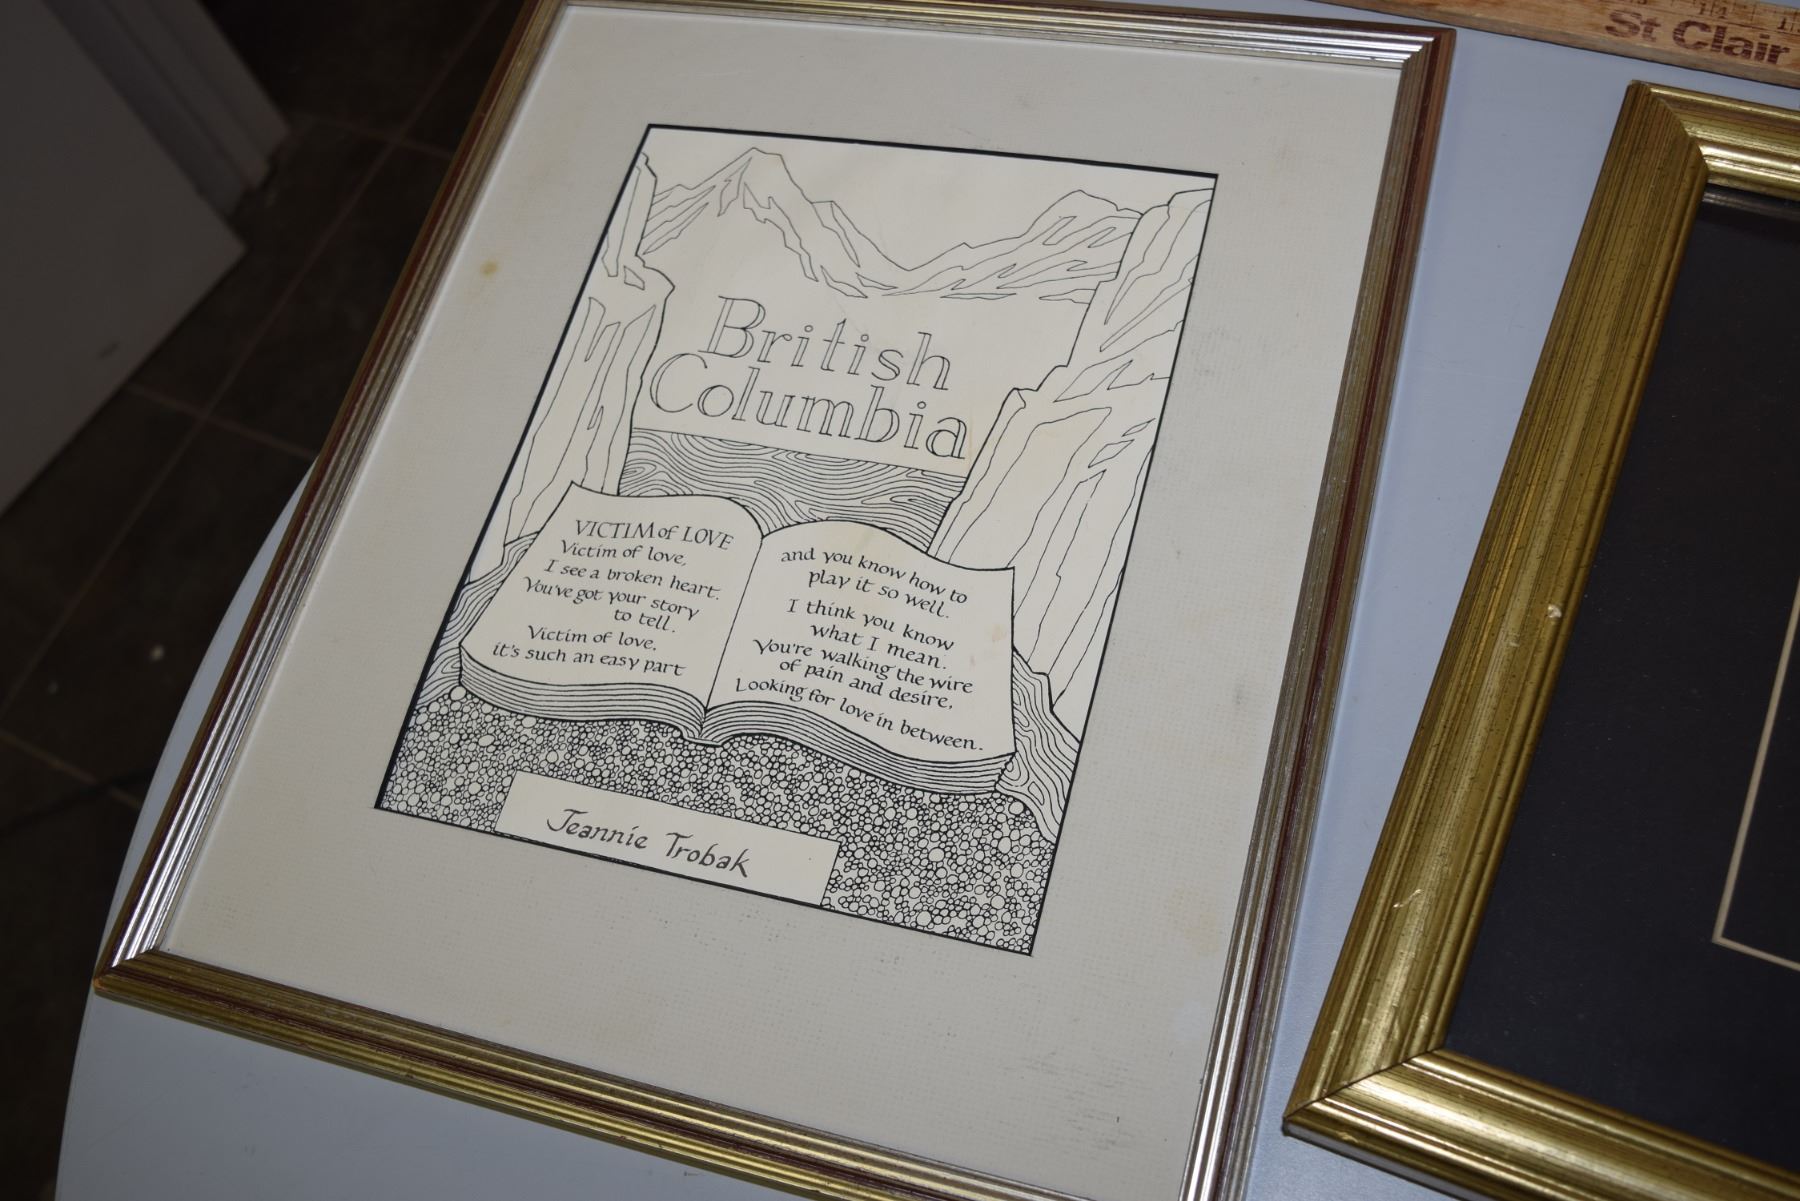 St Clair
British
Columbia
VICTIM of LOVE
Victim of love,
I see a broken heart.
You've got your story
to tell.
Victim of love,
it's such an easy part
and you know how to
play it so well.
I think you know
what I mean.
You're walking the wire
of pain and desire,
Looking for love in between.
Jeannie Trobak